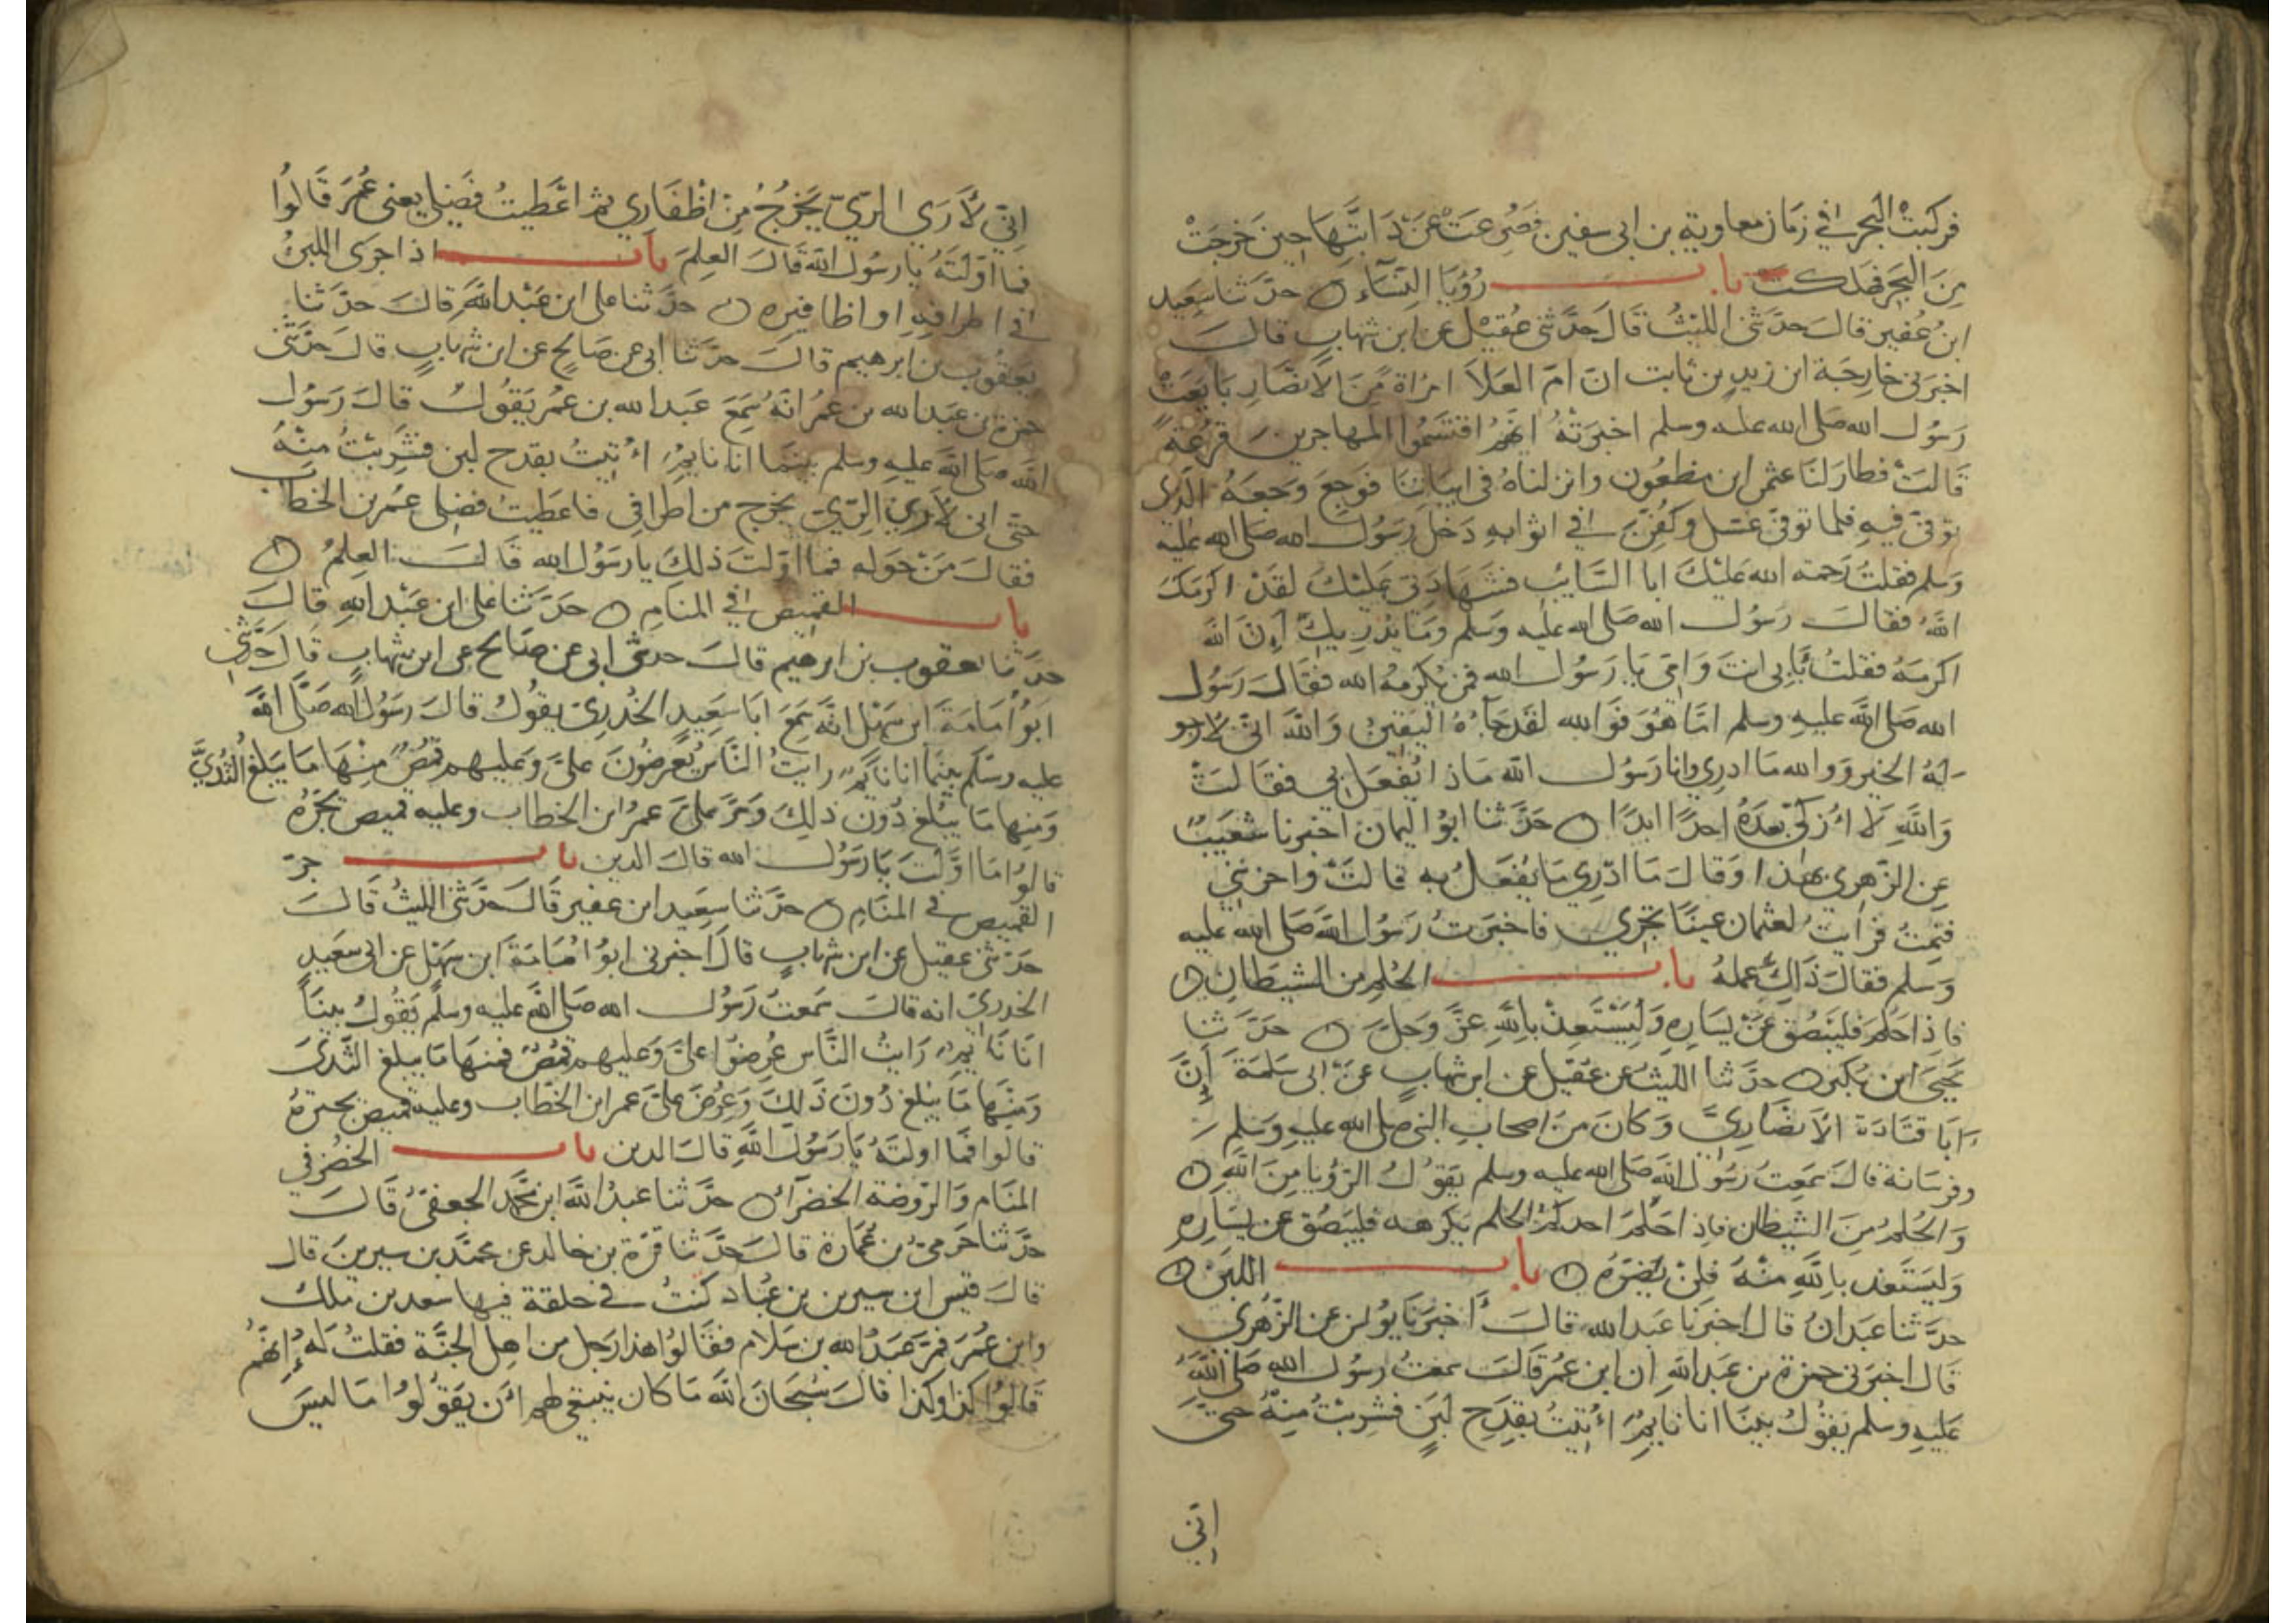 فركبت البحر في زمان معاوية بن ابى سفين فصرعت عن دابتها حين خرجت
من البحر فهلكت باب رؤيا النساء حدثنا سعيد
ابن عفير قال حدثنى الليث قال حدثنى عقيل عن ابن شهاب قال
اخبرنى خارجة ابن زيد بن ثابت ان ام العلا امراة من الانصار بايعت
رسول الله صلى الله عليه وسلم اخبرته انهم اقتسموا المهاجرين قرعة
قالت فطار لنا عثمن ابن مظعون وانزلناه فى ابياتنا فوجع وجعه الذى
توفى فيه فلما توفى غسل وكفن في اثوابه دخل رسول الله صلى الله عليه
وسلم فقلت رحمة الله عليك ابا السايب فشهادتى عليك لقد اكرمك
الله فقال رسول الله صلى الله عليه وسلم وما يدريك ان الله
اكرمه فقلت بابى انت وامى يا رسول الله فمن يكرمه الله فقال رسول
الله صلى الله عليه وسلم اما هو فوالله لقد جاءه اليقين والله انى لارجو
له الخير ووالله ما ادري وانا رسول الله ماذا يفعل بى فقالت
والله لا ازكى بعده احدا ابدا حدثنا ابو اليمان اخبرنا شعيب
عن الزهري بهذا وقال ما ادري ما يفعل به قالت واحزننى
فنمت فرايت لعثمان عينا تجري فاخبرت رسول الله صلى الله عليه
وسلم فقال ذلك عمله باب الحلم من الشيطان
فاذا حلم فليبصق عن يساره وليستعذ بالله عز وجل حدثنا
يحيى ابن بكير حدثنا الليث عن عقيل عن ابن شهاب عن ابى سلمة ان
ابا قتادة الانصاري وكان من اصحاب النبى صلى الله عليه وسلم
وفرسانه قال سمعت رسول الله صلى الله عليه وسلم يقول الرؤيا من الله
والحلم من الشيطان فاذا احلم احدكم الحلم يكرهه فليبصق عن يساره
وليستعذ بالله منه فلن يضره باب اللبن
حدثنا عبدان قال اخبرنا عبد الله قال اخبرنا يونس عن الزهري
قال اخبرنى حمزة بن عبد الله ان ابن عمر قال سمعت رسول الله صلى الله
عليه وسلم يقول بينا انا نايم اتيت بقدح لبن فشربت منه حتى
اني
اني لارى الري يخرج من اظفاري ثم اعطيت فضلى يعنى عمر قالوا
فما اولته يا رسول الله قال العلم باب اذا جرى اللبن
في اطرافه او اظافيره حدثنا على ابن عبد الله قال حدثنا
يعقوب بن ابرهيم قال حدثنا ابى عن صالح عن ابن شهاب قال حدثنى
حمزة بن عبد الله بن عمر انه سمع عبد الله بن عمر يقول قال رسول
الله صلى الله عليه وسلم بينما انا نايم اتيت بقدح لبن فشربت منه
حتى انى لارى الري يخرج من اطرافى فاعطيت فضلى عمر بن الخطاب
فقال من حوله فما اولت ذلك يا رسول الله قال العلم
باب القميص في المنام حدثنا على ابن عبد الله قال
حدثنا يعقوب بن ابرهيم قال حدثنى ابى عن صالح عن ابن شهاب قال حدثنى
ابو امامة ابن سهل انه سمع ابا سعيد الخدري يقول قال رسول الله صلى الله
عليه وسلم بينما انا نايم رايت الناس يعرضون على وعليهم قمص منها ما يبلغ الثدي
ومنها ما يبلغ دون ذلك ومر على عمر ابن الخطاب وعليه قميص يجره
قالوا ما اولت يا رسول الله قال الدين باب جر
القميص في المنام حدثنا سعيد ابن عفير قال حدثنى الليث قال
حدثنى عقيل عن ابن شهاب قال اخبرنى ابو امامة ابن سهل عن ابى سعيد
الخدري انه قال سمعت رسول الله صلى الله عليه وسلم يقول بينا
انا نايم رايت الناس عرضوا على وعليهم قمص فمنها ما يبلغ الثدى
ومنها ما يبلغ دون ذلك وعرض على عمر ابن الخطاب وعليه قميص يجتره
قالوا فما اولته يا رسول الله قال الدين باب الخضر في
المنام والروضة الخضراء حدثنا عبد الله ابن محمد الجعفى قال
حدثنا حرمي بن عمارة قال حدثنا قرة بن خالد عن محمد بن سيرين قال
قال قيس ابن سيرين بن عباد كنت في حلقة فيها سعد بن ملك
وابن عمر فمر عبد الله بن سلام فقالوا هذا رجل من اهل الجنة فقلت له انهم
قالوا كذا وكذا قال سبحان الله ما كان ينبغي لهم ان يقولوا ما ليس